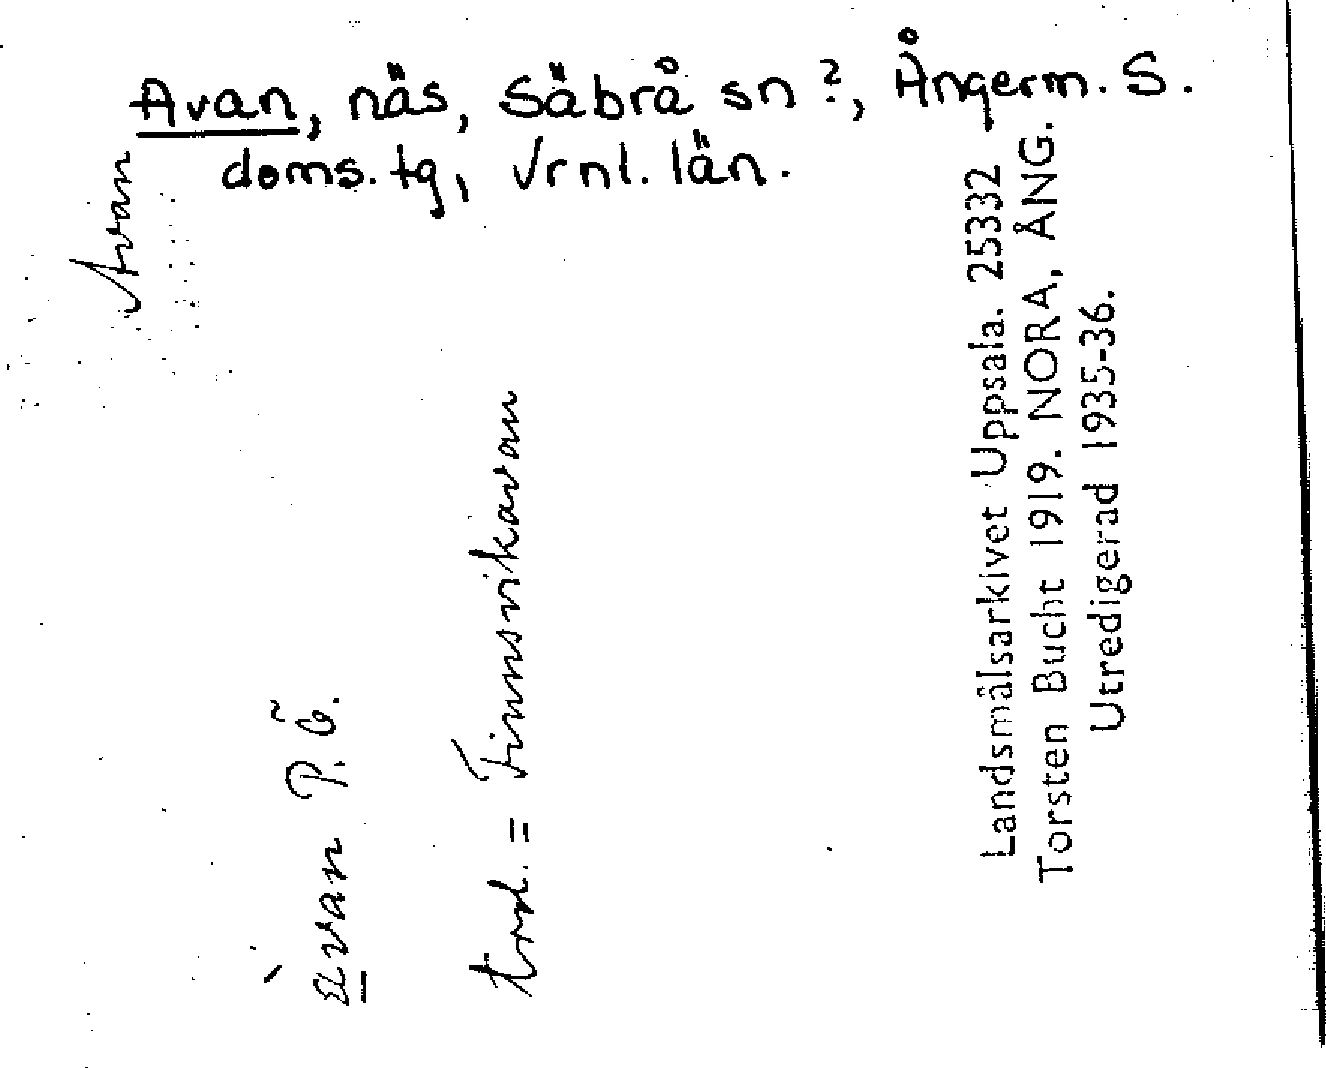 Avan, näs, Säbrå sn?, Ångerm. S.
doms. tg, Vrnl. län.
Avan
àvan P. Ö.
trol. = Finnsvikavan
Landsmålsarkivet Uppsala. 25332
Torsten Bucht 1919. NORA, ÅNG.
Utredigerad 1935-36.